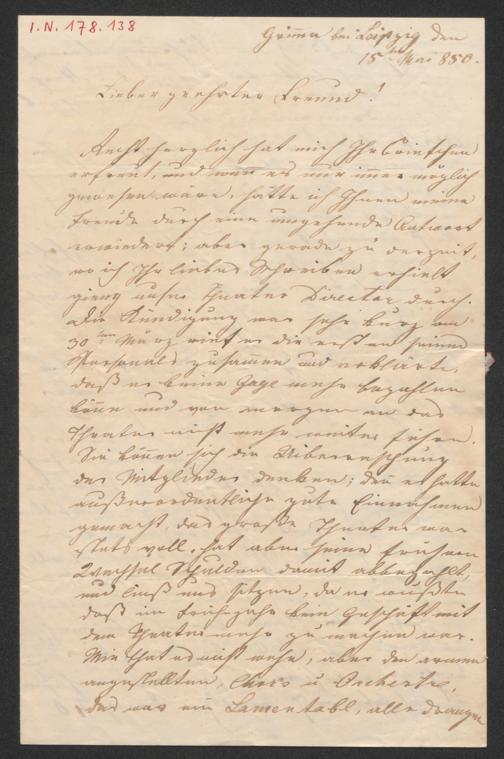 I.N. 178.138
Grimma bei Leipzig den
15ten Mai 850.
Lieber geehrter Freund!
Recht herzlich hat mich Ihr Briefchen
erfreut, und wenn es nur immer möglich
gewesen wäre, hätte ich Ihnen meine
Freude durch eine umgehende Antwort
erwiedert; aber gerade zu derzeit,
wo ich Ihr liebes Schreiben erhielt
gieng unser Theater Director durch.
Die Kündigung war sehr kurz am
30ten März rief er die ersten seines
Personals zusammen und erklärte,
daß er keine Gage mehr bezahlen
könne und von morgen an das
Theater nicht mehr weiter führe.
Sie können sich die Ueberraschung
der Mitglieder denken; den er hatte
außerordentliche gute Einnahmen
gemacht, das große Theater war
stets voll, hat aber seine frühern
Wechsel Schulden damit abbezahlt,
und ließ uns sitzen, da er wußte
daß im Frühjahr kein Geschäft mit
dem Theater mehr zu machen war.
Mir that es nicht wehe, aber den armen
angestellten, Chors u Orchester,
das war ein Lamentabl, alle drangen